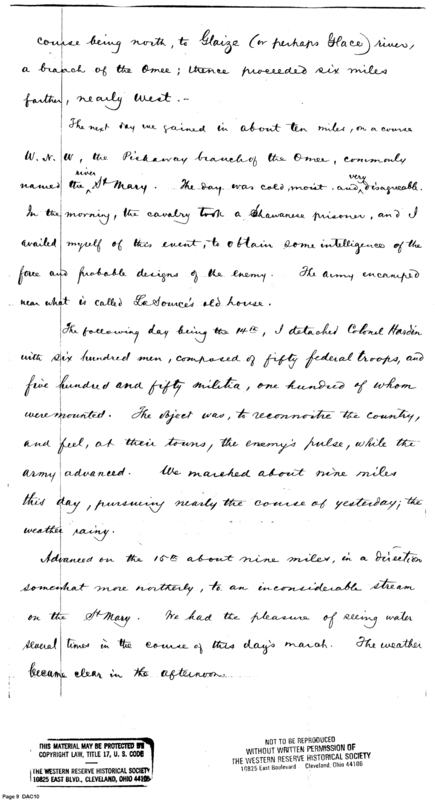 course being north, to Glaize (or perhaps Glace) river,
a branch of the Omee; thence proceeded six miles
farther, nearly West. –
The next day we gained in about ten miles, on a course
W. N. W, the Pickaway branch of the Omee, commonly
named the river St Mary. The day was cold, moist and very disagreable.
In the morning, the cavalry took a Shawanese prisoner, and I
availed myself of this event, to obtain some intelligence of the
force and probable designs of the enemy. The army encamped
near what is called LaSource's old house.
The following day being the 14th, I detached Colonel Hardin
with six hundred men, composed of fifty federal troops, and
five hundred and fifty militia, one hundred of whom
were mounted. The object was, to reconnoitre the country,
and feel, at their towns, the enemy's pulse, while the
army advanced. We marched about nine miles
this day, pursuing nearly the course of yesterday; the
weather rainy.
Advanced on the 15th about nine miles, in a direction
somewhat more northerly, to an inconsiderable stream
on the St Mary. We had the pleasure of seeing water
several times in the course of this day's march. The weather
became clear in the afternoon.
THIS MATERIAL MAY BE PROTECTED BY
COPYRIGHT LAW, TITLE 17, U. S. CODE
THE WESTERN RESERVE HISTORICAL SOCIETY
10825 EAST BLVD., CLEVELAND, OHIO 44106
NOT TO BE REPRODUCED
WITHOUT WRITTEN PERMISSION OF
THE WESTERN RESERVE HISTORICAL SOCIETY
10825 East Boulevard Cleveland, Ohio 44106
Page 9 DAC10